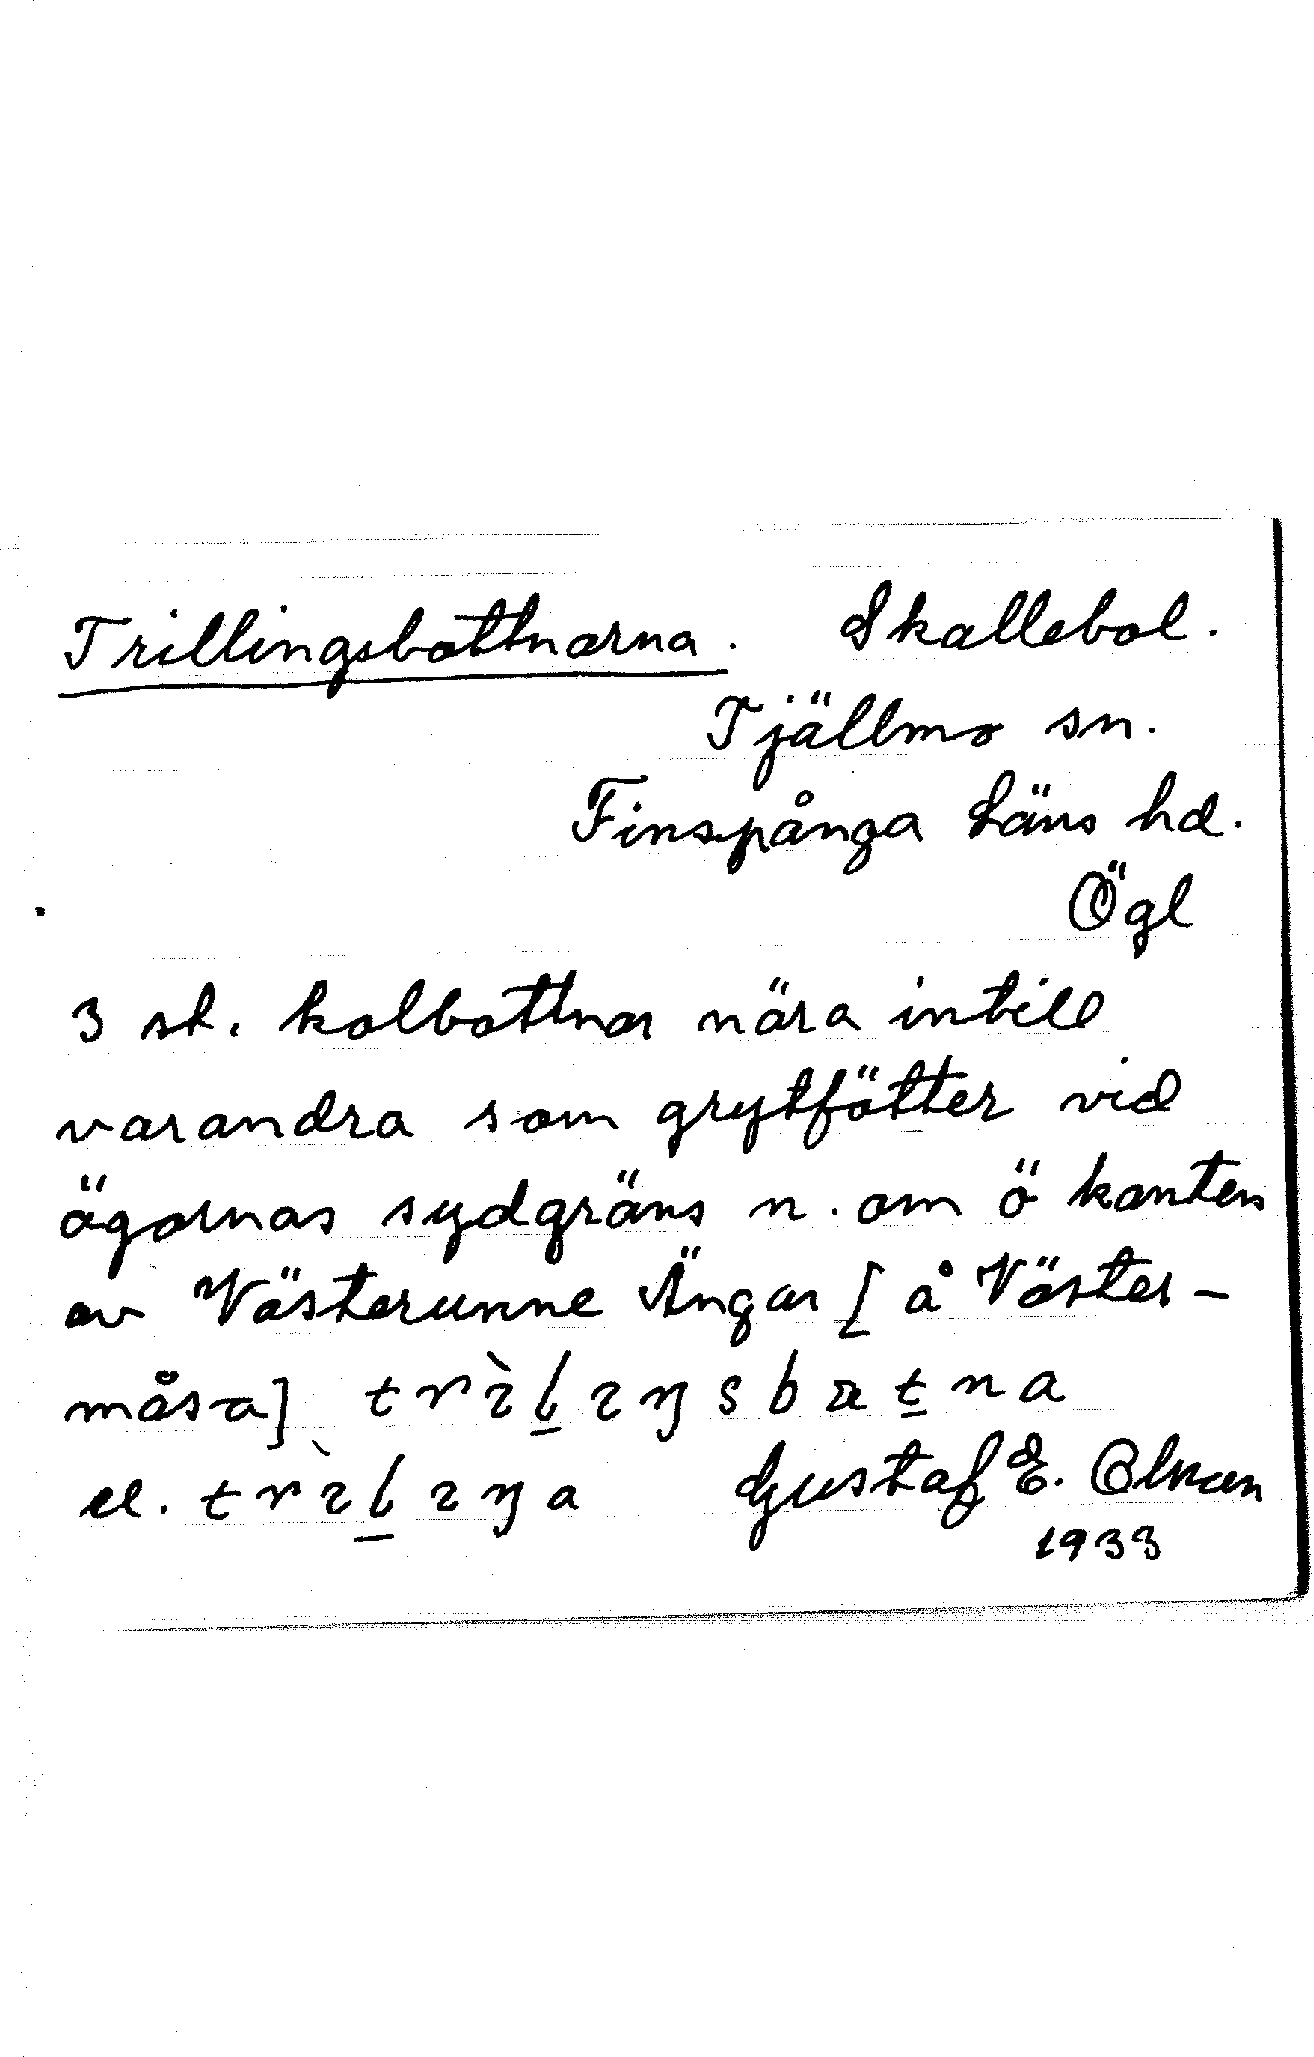 Trillingsbottnarna. Skallebol.
Tjällmo sn.
Finspånga Läns hd.
Ögl
3 st. kolbottnar nära intill
varandra som grytfötter vid
ägornas sydgräns n. om ö kanten
av Västerunne Ängar [å Väster-
måsa]
el. Gustaf E. Olsson
1933